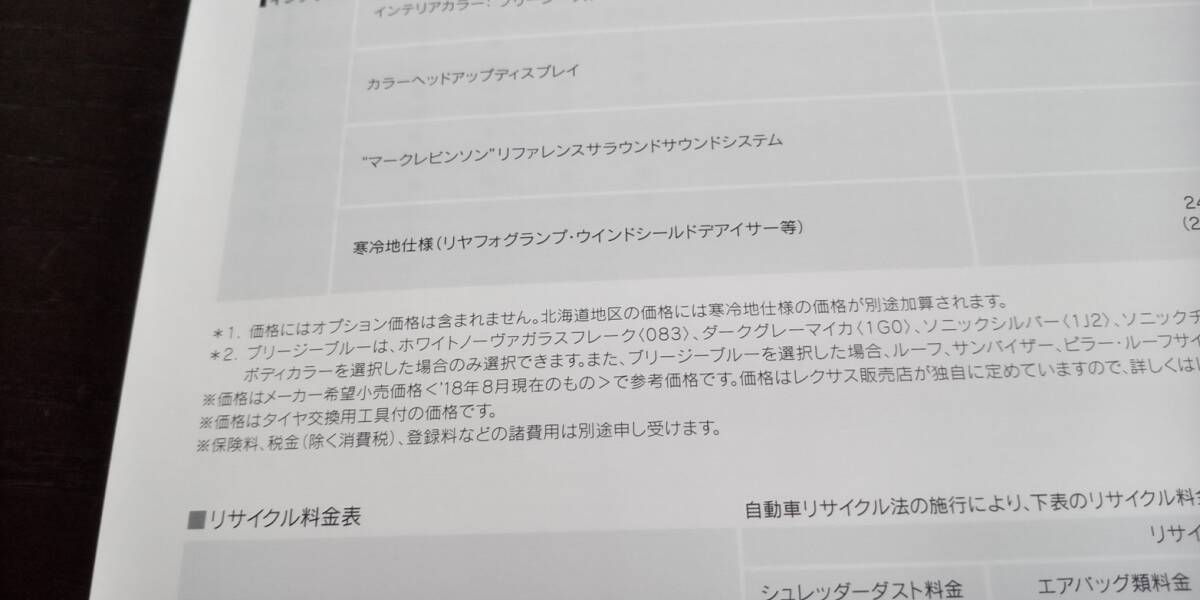 インテリアカラー：ブリージーブルー
カラーヘッドアップディスプレイ
“マークレビンソン”リファレンスサラウンドサウンドシステム
寒冷地仕様（リヤフォグランプ・ウインドシールドデアイサー等）
24
(2
＊1. 価格にはオプション価格は含まれません。北海道地区の価格には寒冷地仕様の価格が別途加算されます。
＊2. ブリージーブルーは、ホワイトノーヴァガラスフレーク〈083〉、ダークグレーマイカ〈1G0〉、ソニックシルバー〈1J2〉、ソニックチ
ボディカラーを選択した場合のみ選択できます。また、ブリージーブルーを選択した場合、ルーフ、サンバイザー、ピラー・ルーフサイ
※価格はメーカー希望小売価格＜'18年8月現在のもの＞で参考価格です。価格はレクサス販売店が独自に定めていますので、詳しくは
※価格はタイヤ交換用工具付の価格です。
※保険料、税金（除く消費税）、登録料などの諸費用は別途申し受けます。
■リサイクル料金表
自動車リサイクル法の施行により、下表のリサイクル料金
リサイ
シュレッダーダスト料金
エアバッグ類料金